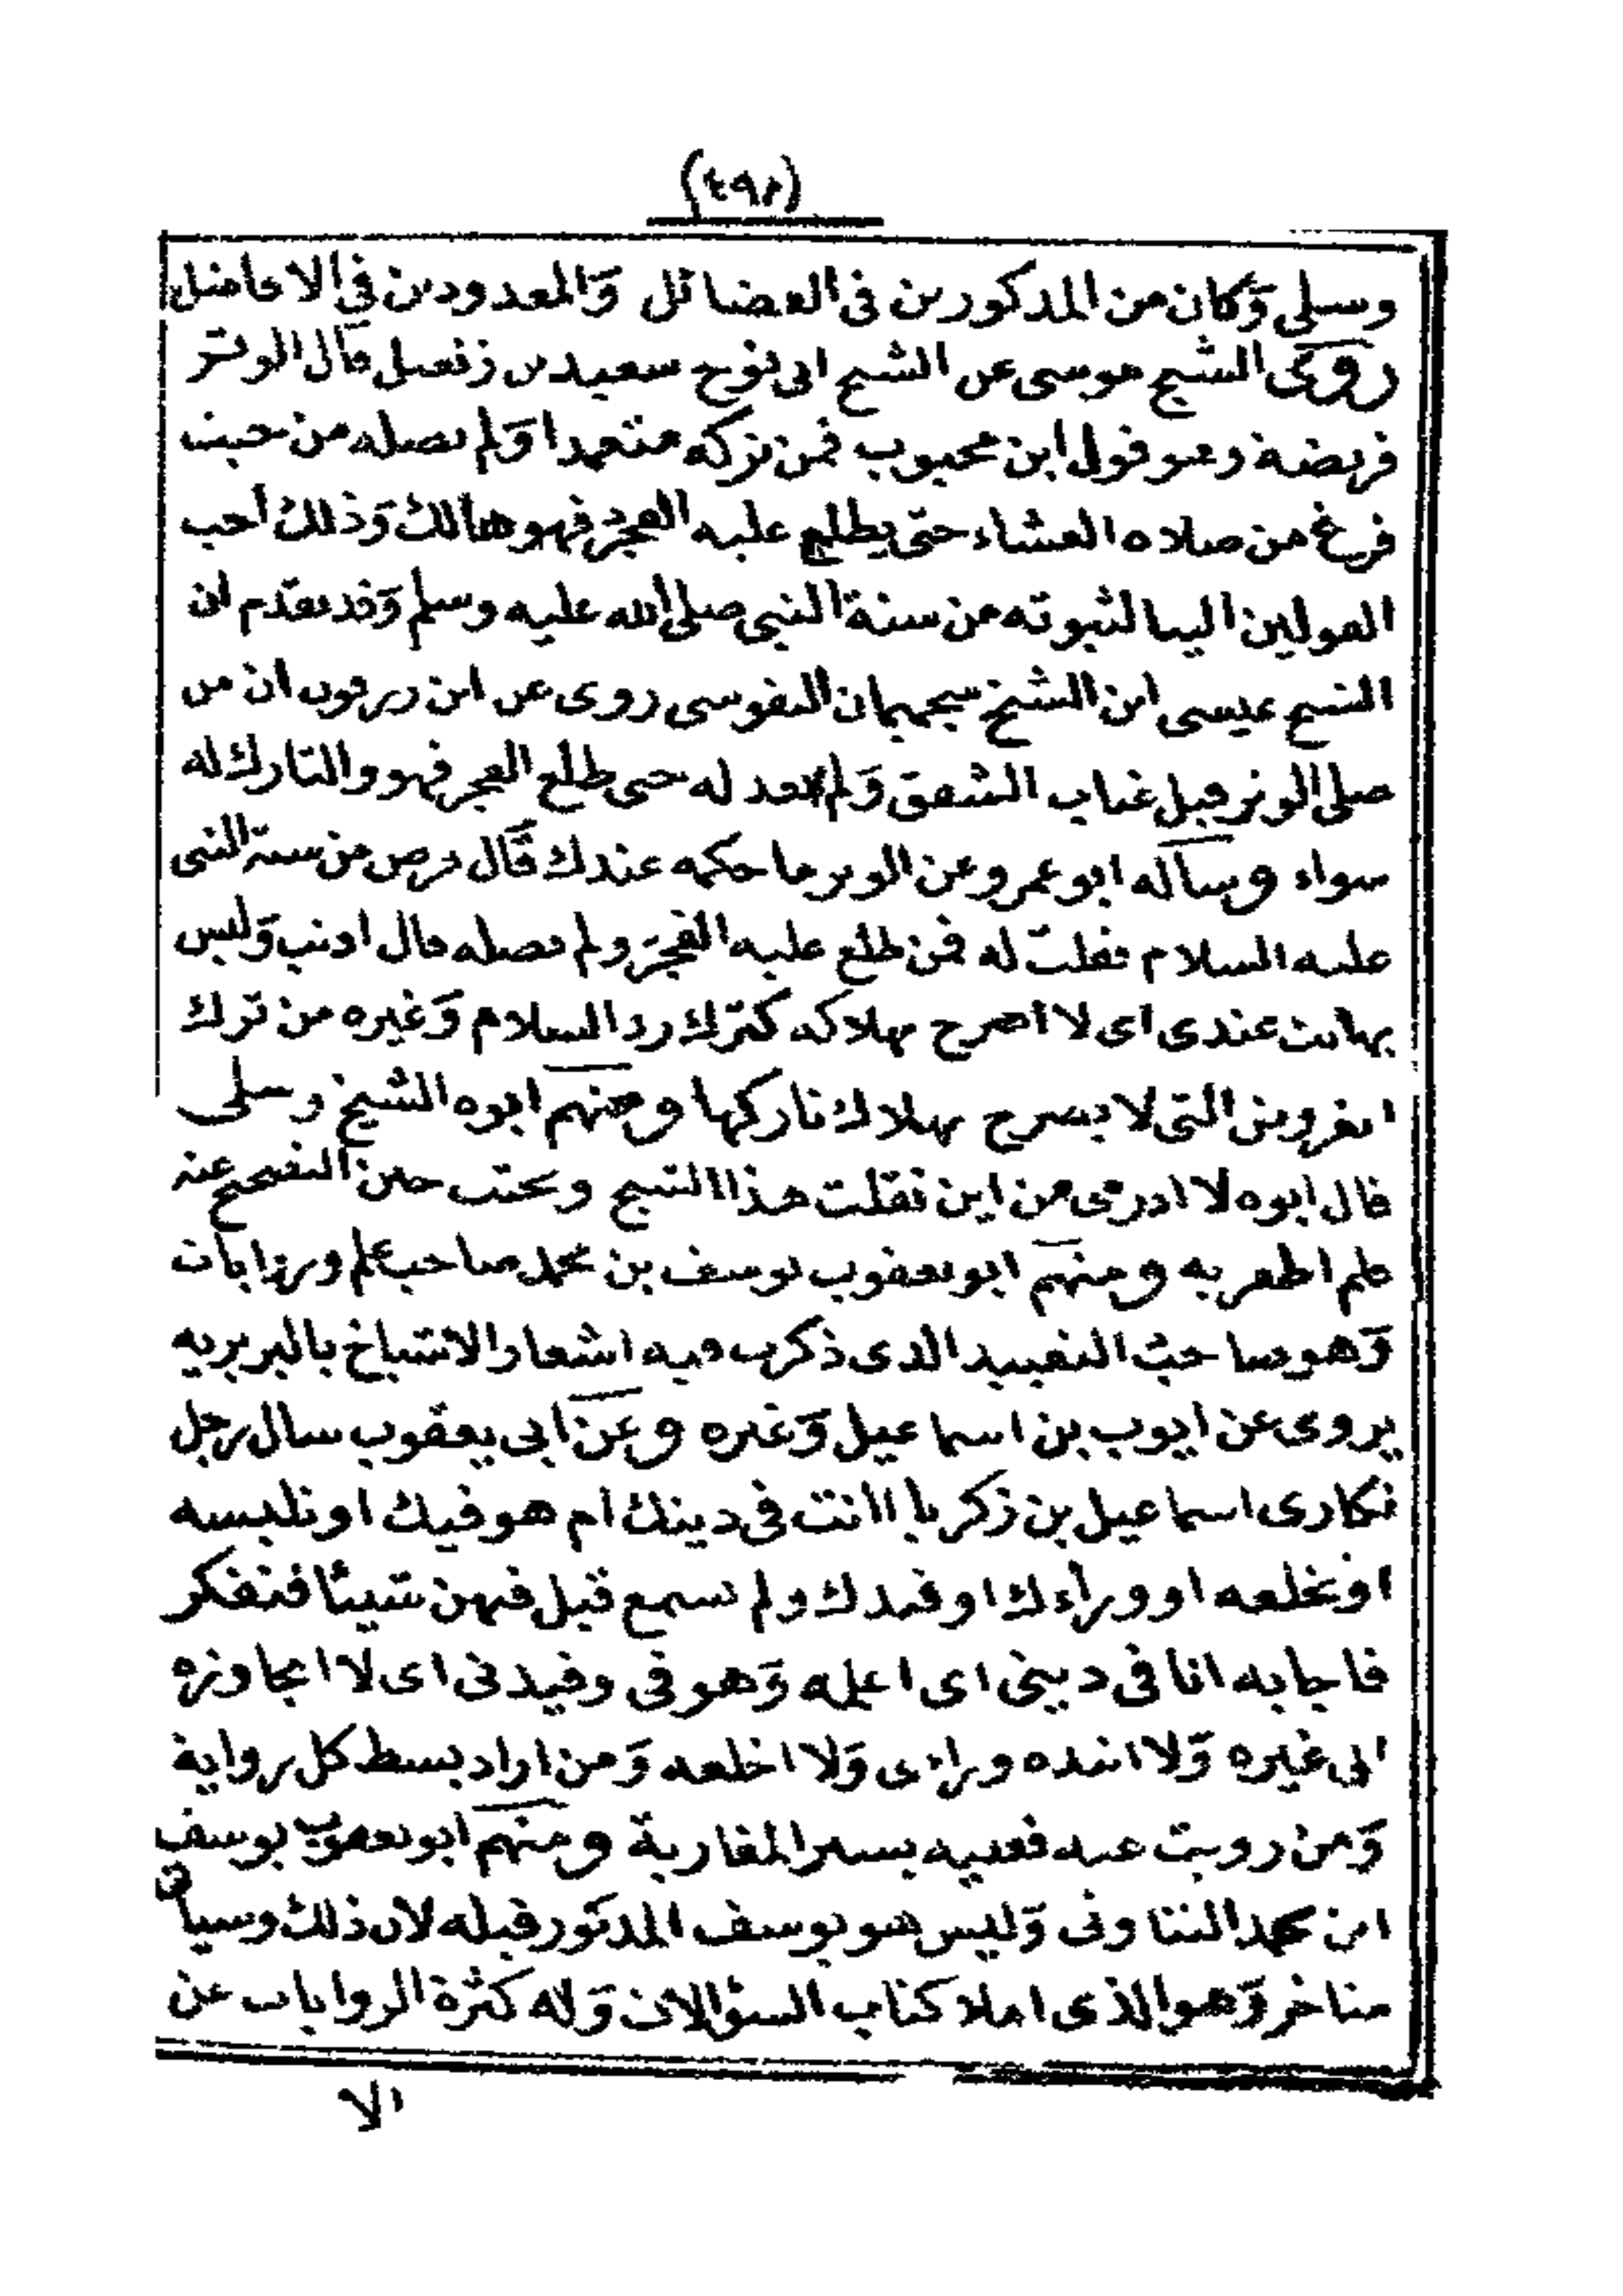 (٤٩٢)
وسلى وَكان من المذكورين فى الفضائل وَالمعدودين فى الافاضل
روى الشيخ موسى عن الشيخ ابى نوح سعيد بن زنغيل قال الوتر
فريضة وهو قول ابن محبوب فمن تركه متعمدا وَلم يصله من حيث
فرغ من صلاه العشاء حتى يطلع عليه الفجر فهو هالك وَذلك أحب
القولين الينا لثبوته من سنة النبى صلى الله عليه وسلم وَقد تقدم ان
الشيخ عيسى ابن الشيخ سجميمان النفوسى روى عن ابن زرقون ان من
صلى الوتر قبل غياب الشفق وَلم يعد له حتى طلع الفجر فهو والتارك له
سواء وساله ابو عمرو عن الوتر ما حكمه عندك قَال فرض من سنة النبى
عليه السلام فقلت له فمن طلع عليه الفجرَ ولم يصله قال اذنب وَليس
بهالك عندى اى لا اصرح بهلاكه كترك رد السلام وَغيره من ترك
الفروض التى لا يصرح بهلاك تاركها ومنهم ابوه الشيخ وسلى
قال ابوه لا ادرى من اين نقلت هذا الشيخ وبحثت حين التصحيح عنه
فلم اظفر به ومنهم ابو يعقوب يوسف بن محمد صاحب علم وروايات
وَهو صاحب التقييد الذى ذكرت فيه اشعار الاشياخ بالبربريه
يروى عن ايوب بن اسماعيل وَغيره وعن ابى يعقوب سال رجل
نكارى اسماعيل بن زكريا اانت فى دينك ام هو فيك او تلبسه
او تخلعه او وراءك او قيدك ولم نسمع قبل فيهن شيئا فتفكر
فاجابه انا فى دينى اى اعلمه وَهو فى وقيدنى اى لا اتجاوزه
الى غيره وَلا انبذه وراءى وَلا اخلعه وَمن اراد بسط كل رواية
وَمن رويت عنه فعليه بسير المغاربة ومنهم ابو يعقوب يوسف
ابن محمد التناوتى وَليس هو يوسف المذكور قبله لان ذلك وسيانى
متاخر وَهو الذى املا كتاب السؤالات وَله كثرة الروايات عن
الا